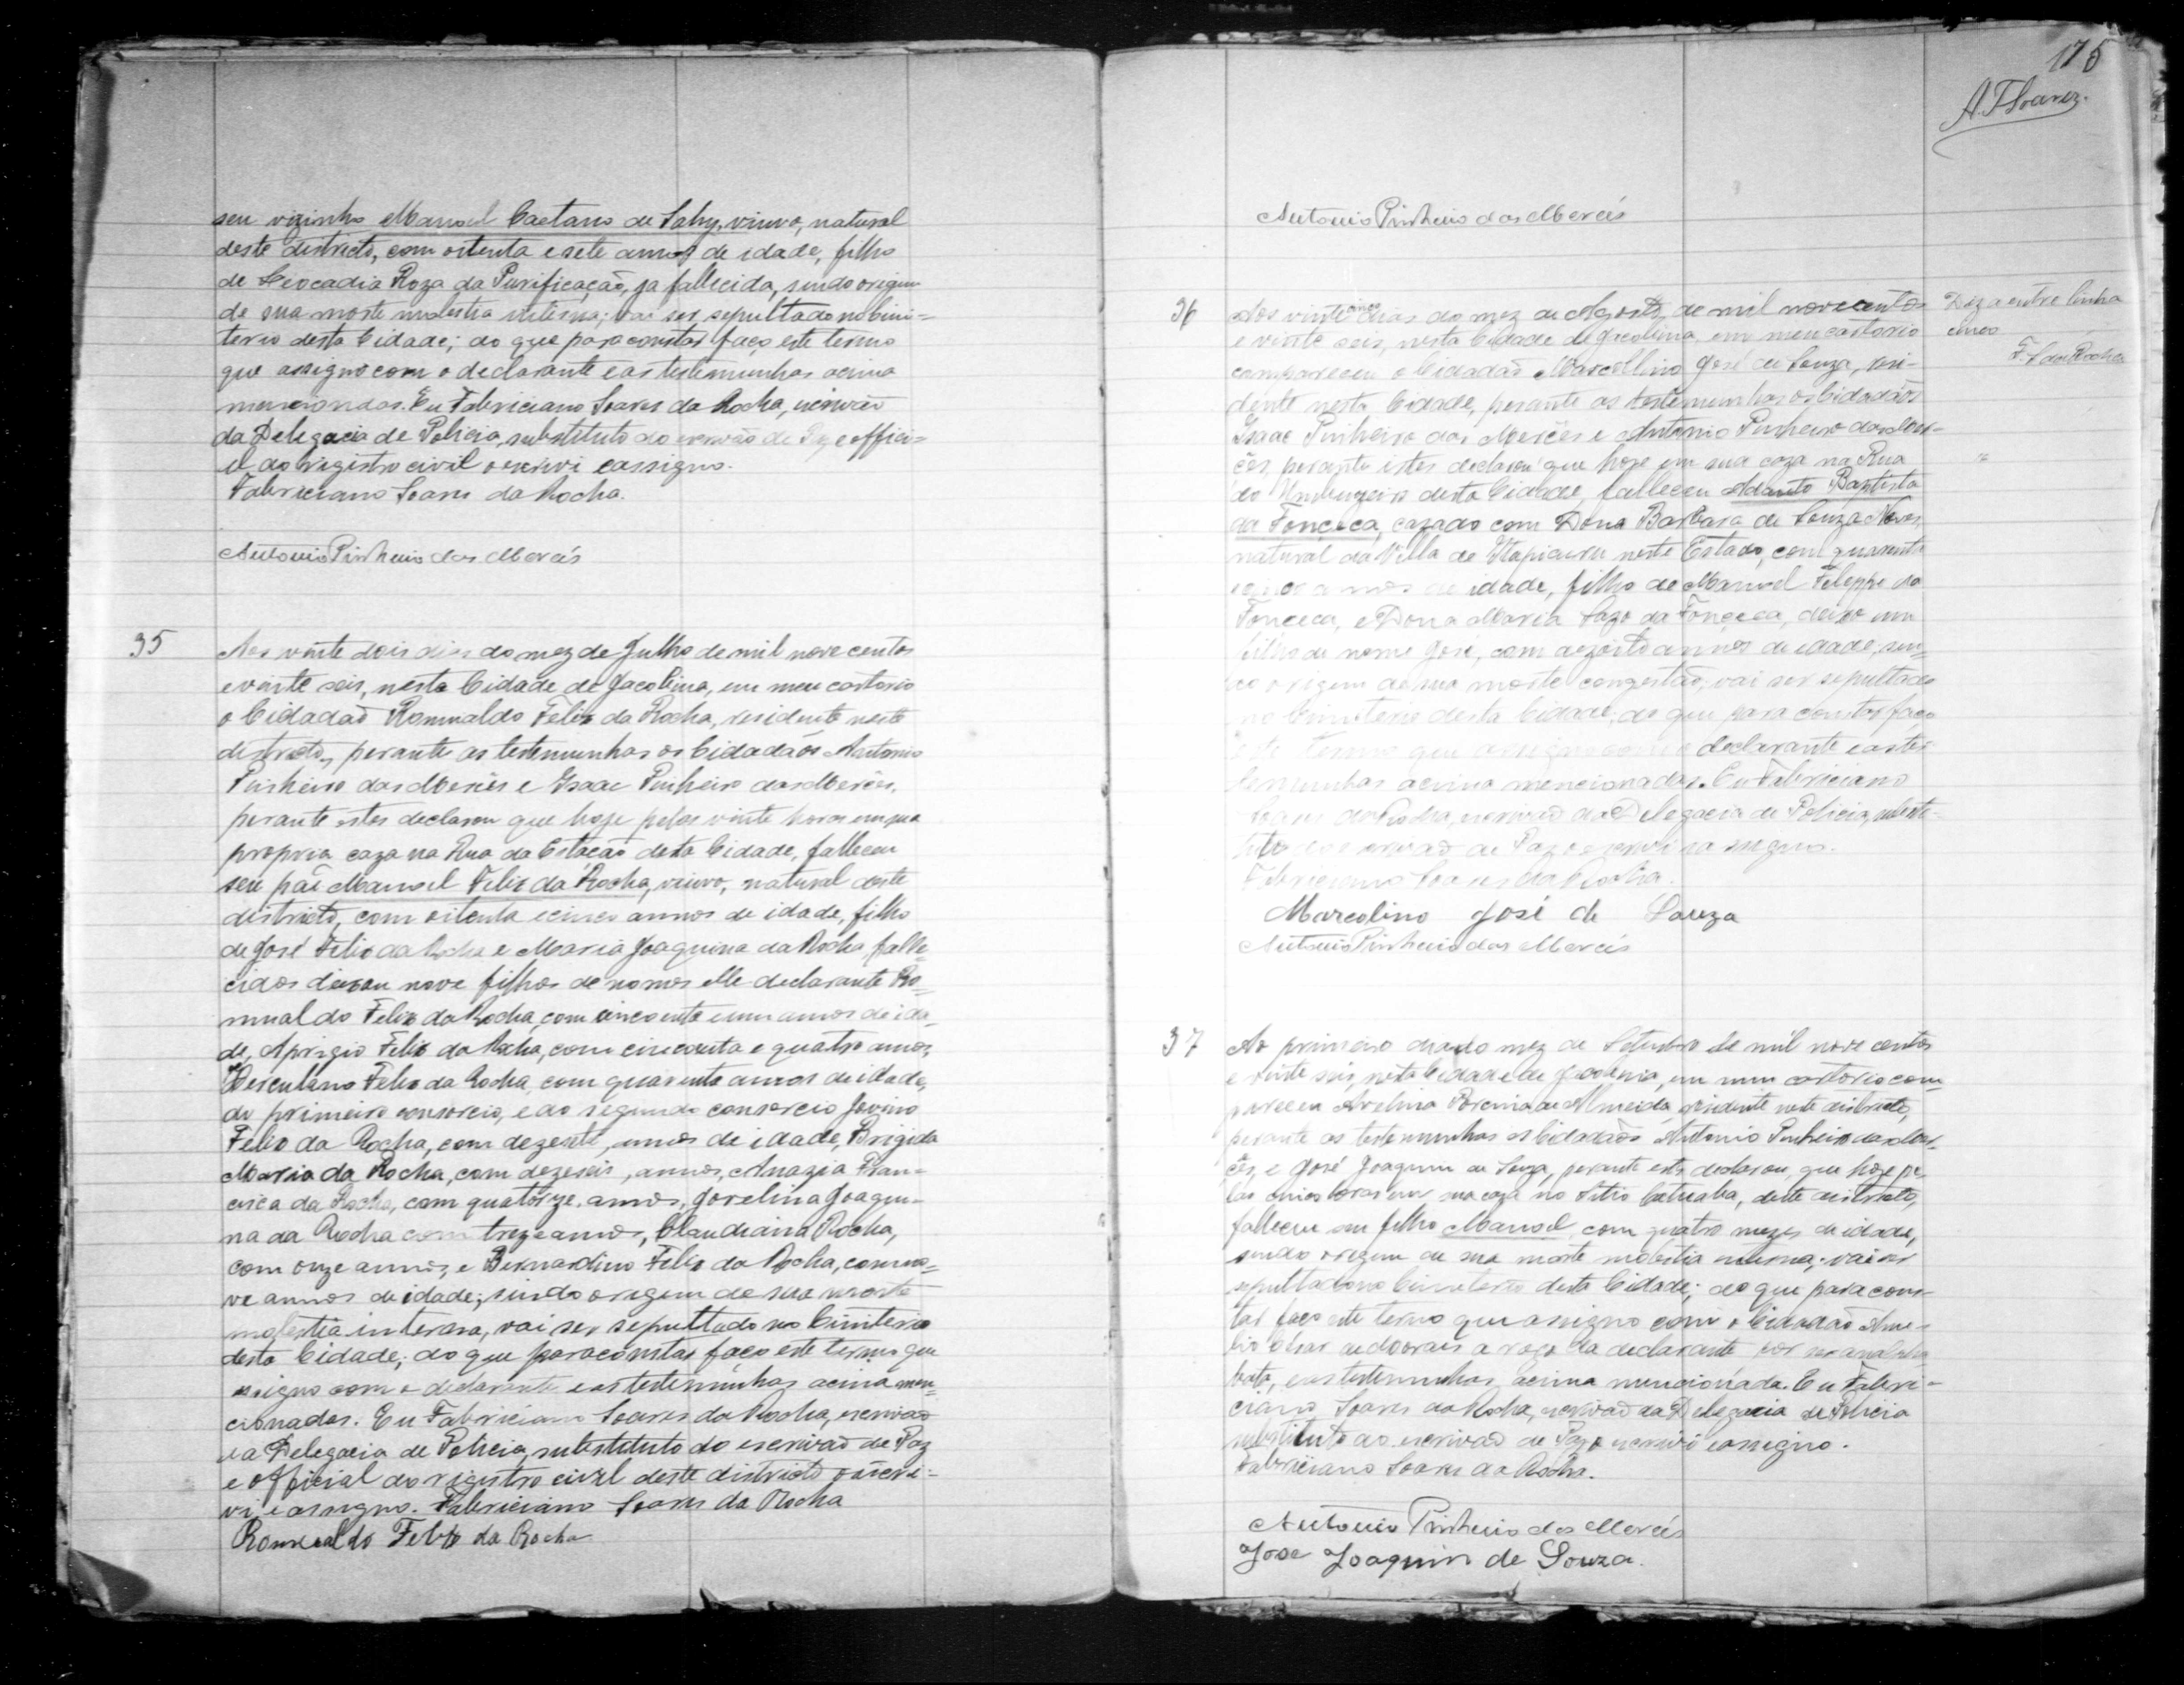 seu vizinho Manoel Caetano de Sahy, viuvo, natural
deste districto, com oitenta e sete annos de idade, filho
de Leocadia Roza da Purificação, ja fallecida, sendo origem
de sua morte molestia interna; vai ser sepultado no Cimi=
terio desta Cidade; do que para constar faço este termo
que assigno com o declarante e as testemunhas acima
mencionadas. Eu Fabriciano Soares da Rocha, escrivão
da Delegacia de Policia, substituto do escrivão de Paz e offici=
al do registro civil o escrevi e assigno.
Fabriciano Soares da Rocha.
Antonio Pinheiro das Mercês
35
Aos vinte dois dias do mez de Julho de mil nove centos
e vinte seis, nesta Cidade de Jacobina, em meu cartorio
o Cidadaõ Romualdo Felix da Rocha, residente neste
districto, perante as testemunhas os Cidadãos Antonio
Pinheiro das Mercês e Isaac Pinheiro das Mercês,
perante estes declarou que hoje pelas vinte horas em sua
propria caza na Rua da Estacão desta Cidade, falleceu
seu pai Manoel Felix da Rocha, viuvo, natural deste
districto, com oitenta e cinco annos de idade, filho
de José Felix da Rocha e Maria Joaquina da Rocha, falle=
cidos deixou nove filhos de nomes elle declarante Ro=
mualdo Felix da Rocha, com cincoenta e um annos de ida=
de, Aprigio Felix da Rocha, com cincoenta e quatro annos,
Herculano Felix da Rocha com quarenta annos de idade,
do primeiro consorcio, e do segundo consorcio Jovino
Felix da Rocha, com dezesete, annos de idade, Brigida
Maria da Rocha, com dezeseis, annos, Anazia Fran=
cisca da Rocha, com quatorze annos, Jovelina Joaqui=
na da Rocha com treze annos, Claudiana Rocha,
com onze annos, e Bernardino Felix da Rocha, com no=
ve annos de idade; sendo origem de sua morte
molestia interna, vai ser sepultado no Cimiterio
desta Cidade; do que para constar faço este termo que
assigno com o declarante e as testemunhas acima men=
cionadas. Eu Fabriciano Soares da Rocha, escrivaõ
da Delegacia de Policia, substituto do escrivaõ de Paz
e official do registro civil deste districto o escre=
vi e assigno. Fabriciano Soares da Rocha
Romualdo Felix da Rocha
175
A. F Soarez.
Antonio Pinheiro das Mercês
36
Aos vinte cinco dias do mez de Agosto, de mil nove centos
e vinte seis, nesta Cidade de Jacobina, em meu cartorio
compareceu o Cidadaõ Marcollino José de Souza, resi-
dente nesta Cidade, perante as testemunhas os Cidadãos
Isaac Pinheiro das Mercês e Antonio Pinheiro das Mer-
cês, perante estes declarou que hoje em sua caza na Rua
do Umbuzeiro desta Cidade, falleceu Adauto Baptista
da Fonceca, cazado com Dona Barbara de Souza Novas,
natural da Villa de Itapicuru neste Estado, com quarenta
annos de idade, filho de Manoel Feleppe da
Fonceca, e Dona Maria da Fonceca, deixo um
filho de nome José, com dezoito annos de idade, sen=
do origem de sua morte congestaõ, vai ser sepultado
no Cimiterio desta Cidade; do que para constar faço
este termo que assigno com o declarante e as tes-
temunhas acima mencionadas. Eu Fabriciano
Soares da Rocha, escrivaõ da Delegacia de Policia, substi-
tuto do escrivaõ de Paz o escrevi e assigno.
Fabriciano Soares da Rocha.
Marcolino José de Souza
Antonio Pinheiro das Mercês
Diz a entre linha
cinco
F. S da Rocha
37
Ao primeiro dia do mez de Setembro de mil nove centos
e vinte seis, nesta Cidade de Jacobina, em meu cartorio com=
pareceu Avelina Porcina de Almeida, residente neste districto,
perante as testemunhas os Cidadaõs Antonio Pinheiro das Mer=
cês, e José Joaquim de Souza, perante estes declarou, que hoje pe=
las cinco horas em sua caza no Sitio Catuaba, deste districto,
falleceu seu filho Manoel, com quatro mezes de idade,
sendo origem de sua morte molestia interna; vai ser
sepultado no Cimiterio desta Cidade; do que para cons-
tar faço este termo que assigno com o Cidadaõ
Cesar de Moraes a rogo da declarante por ser analpha
beta, e as testemunhas acima mencionada. Eu Fabri=
ciano Soares da Rocha, escrivaõ da Delegacia de Policia
substituto do escrivaõ de Paz o escrevi e assigno.
Fabriciano Soares da Rocha.
Antonio Pinheiro das Mercês
Jose Joaquim de Souza.